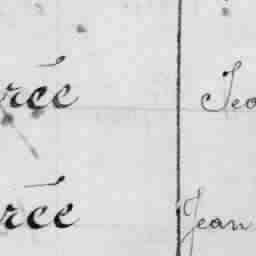 rée Jea
rée Jean